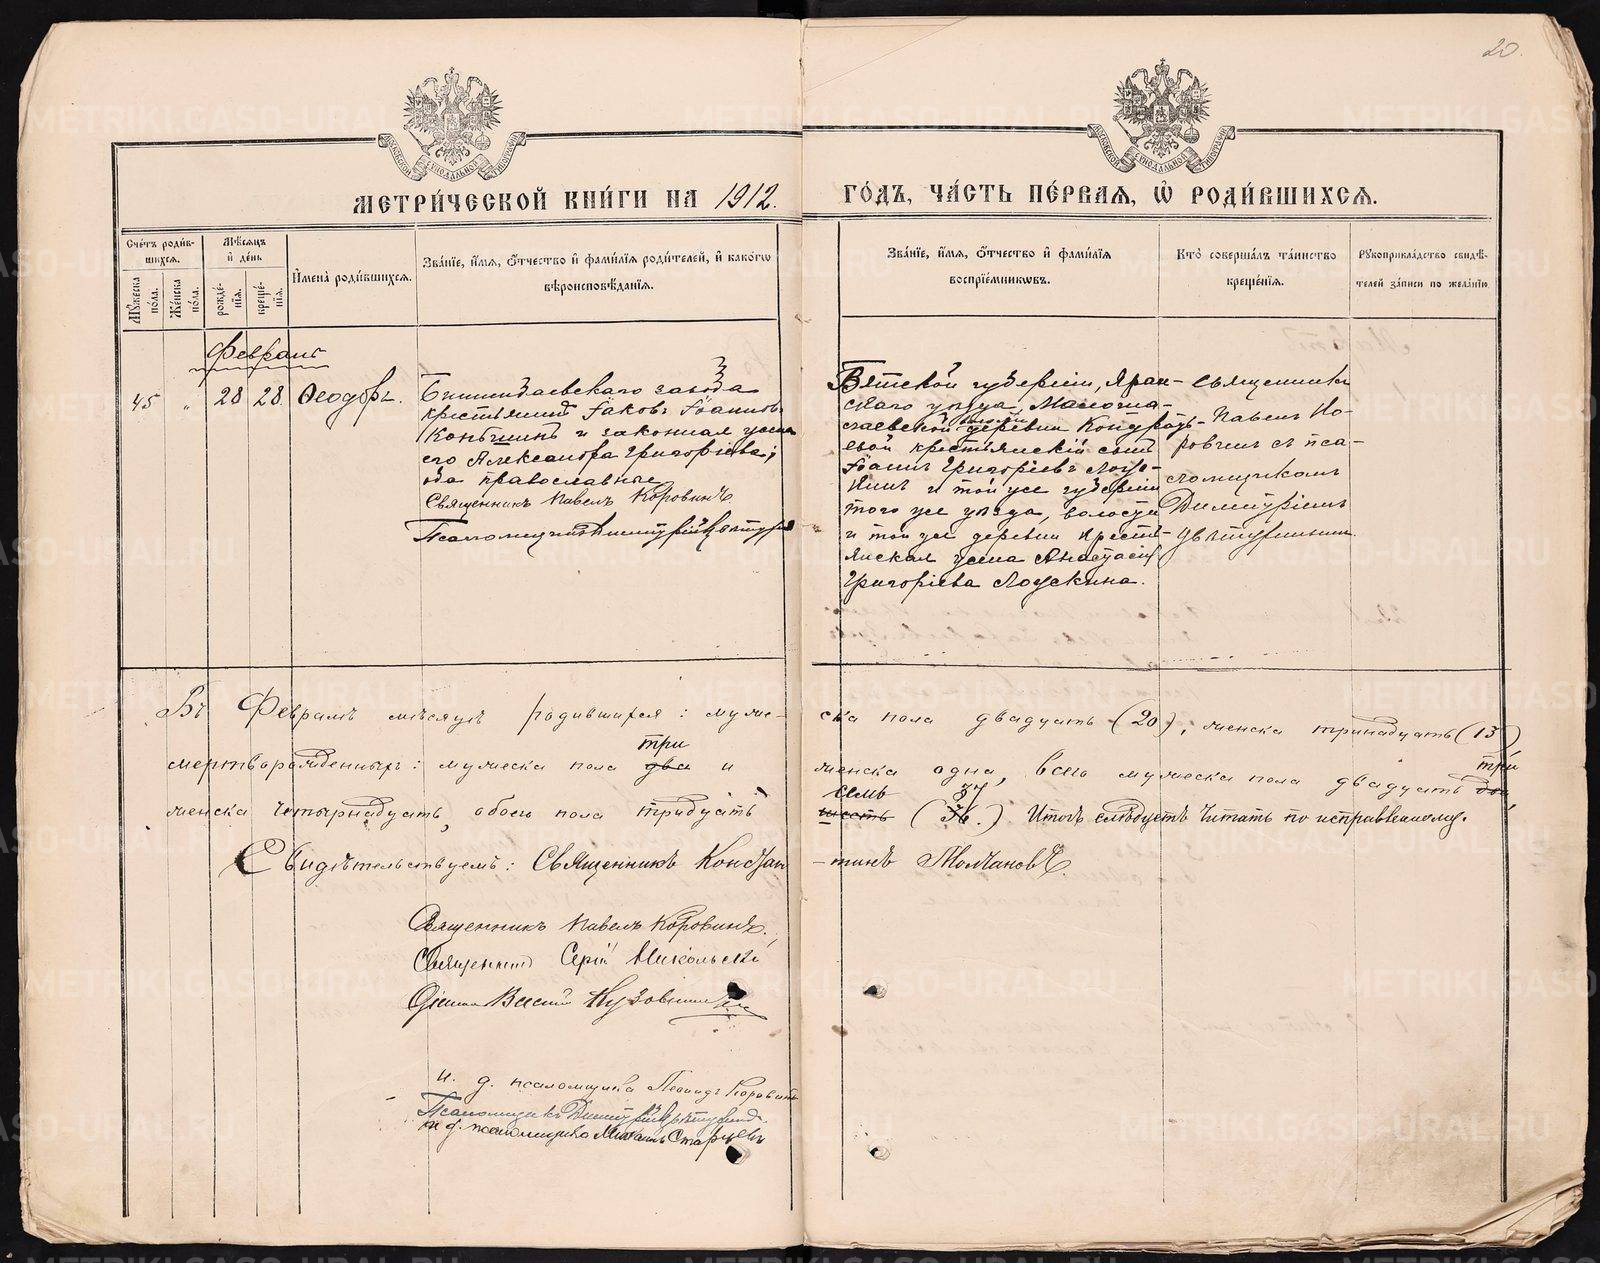 20.
МОСКОВСКОЙ СѴНОДАЛЬНОЙ ТИПОГРАФІИ
МОСКОВСКОЙ СѴНОДАЛЬНОЙ ТИПОГРАФІИ
МЕТРИ́ЧЕСКОЙ КНИ́ГИ НА 1912. ГО́ДЪ, ЧА́СТЬ ПЕ́РВАЯ, Ѡ҆ РОДИ́ВШИХСЯ.
Сче́тъ роди́в-
шихся.
Мꙋ́жеска по́ла.
Же́нска по́ла.
Мѣ́сяцъ и҆ де́нь
рожде́-нїѧ.
креще́-нїѧ.
И҆мена̀ роди́вшихся.
Зва́нїе, и҆́мѧ, ѻ҆́тчество и҆ фами́лїѧ роди́телей, и҆ како́гѡ
вѣроисповѣ́данїѧ.
Зва́нїе, и҆́мѧ, ѻ҆́тчество и҆ фами́лїѧ
воспрїе́мникѡвъ.
Кто̀ соверша́лъ та́инство
креще́нїѧ.
Рꙋкоприкла́дство свидѣ́-
телей за́писи по жела́нїю
Февраль
45 „ 28 28. Ѳеодоръ.
Билимбаевскаго завода
крестьянинъ Іаковъ Іоанновъ
и законная жена
его Александра Григорьева;
оба православные
Священникъ Павелъ Коровинъ
Псаломщикъ Димитрій
Вятской губерніи, Яран-
скаго уѣзда,
волости деревни
крестьянскій сынъ
Іоаннъ Григорьевъ
и той же губерніи
того же уѣзда, волости
и той же деревни кресть-
янская жена Анастасія
Григорьева Лоскина.
Священникъ
Павелъ Ко-
ровинъ съ пса-
ломщикомъ
Димитріемъ
Въ Февралѣ мѣсяцѣ родившихся: муже-
ска пола двадцать (20), женска тринадцать (13)
три
мертворожденныхъ: мужеска пола два и
женска одна, всего мужеска пола двадцать
три
женска четырнадцать, обоего пола тридцать
семь 37
шесть (36.) Итогъ слѣдуетъ читать по исправленному.
Свидѣтельствуемъ: Священникъ Констан-
-тинъ Молчановъ.
Священникъ Павелъ Коровинъ.
Священникъ Сергій Никольскій
и. д. псаломщика Леонидъ Коровинъ
Псаломщикъ Димитрій
и д. псаломщика Михаилъ Старцевъ
METRIKI.GASO-URAL.RU